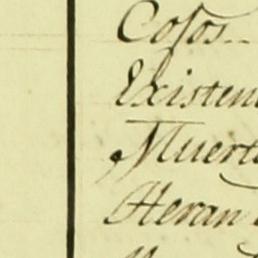 Cosos..
Existen
Muert
Heran